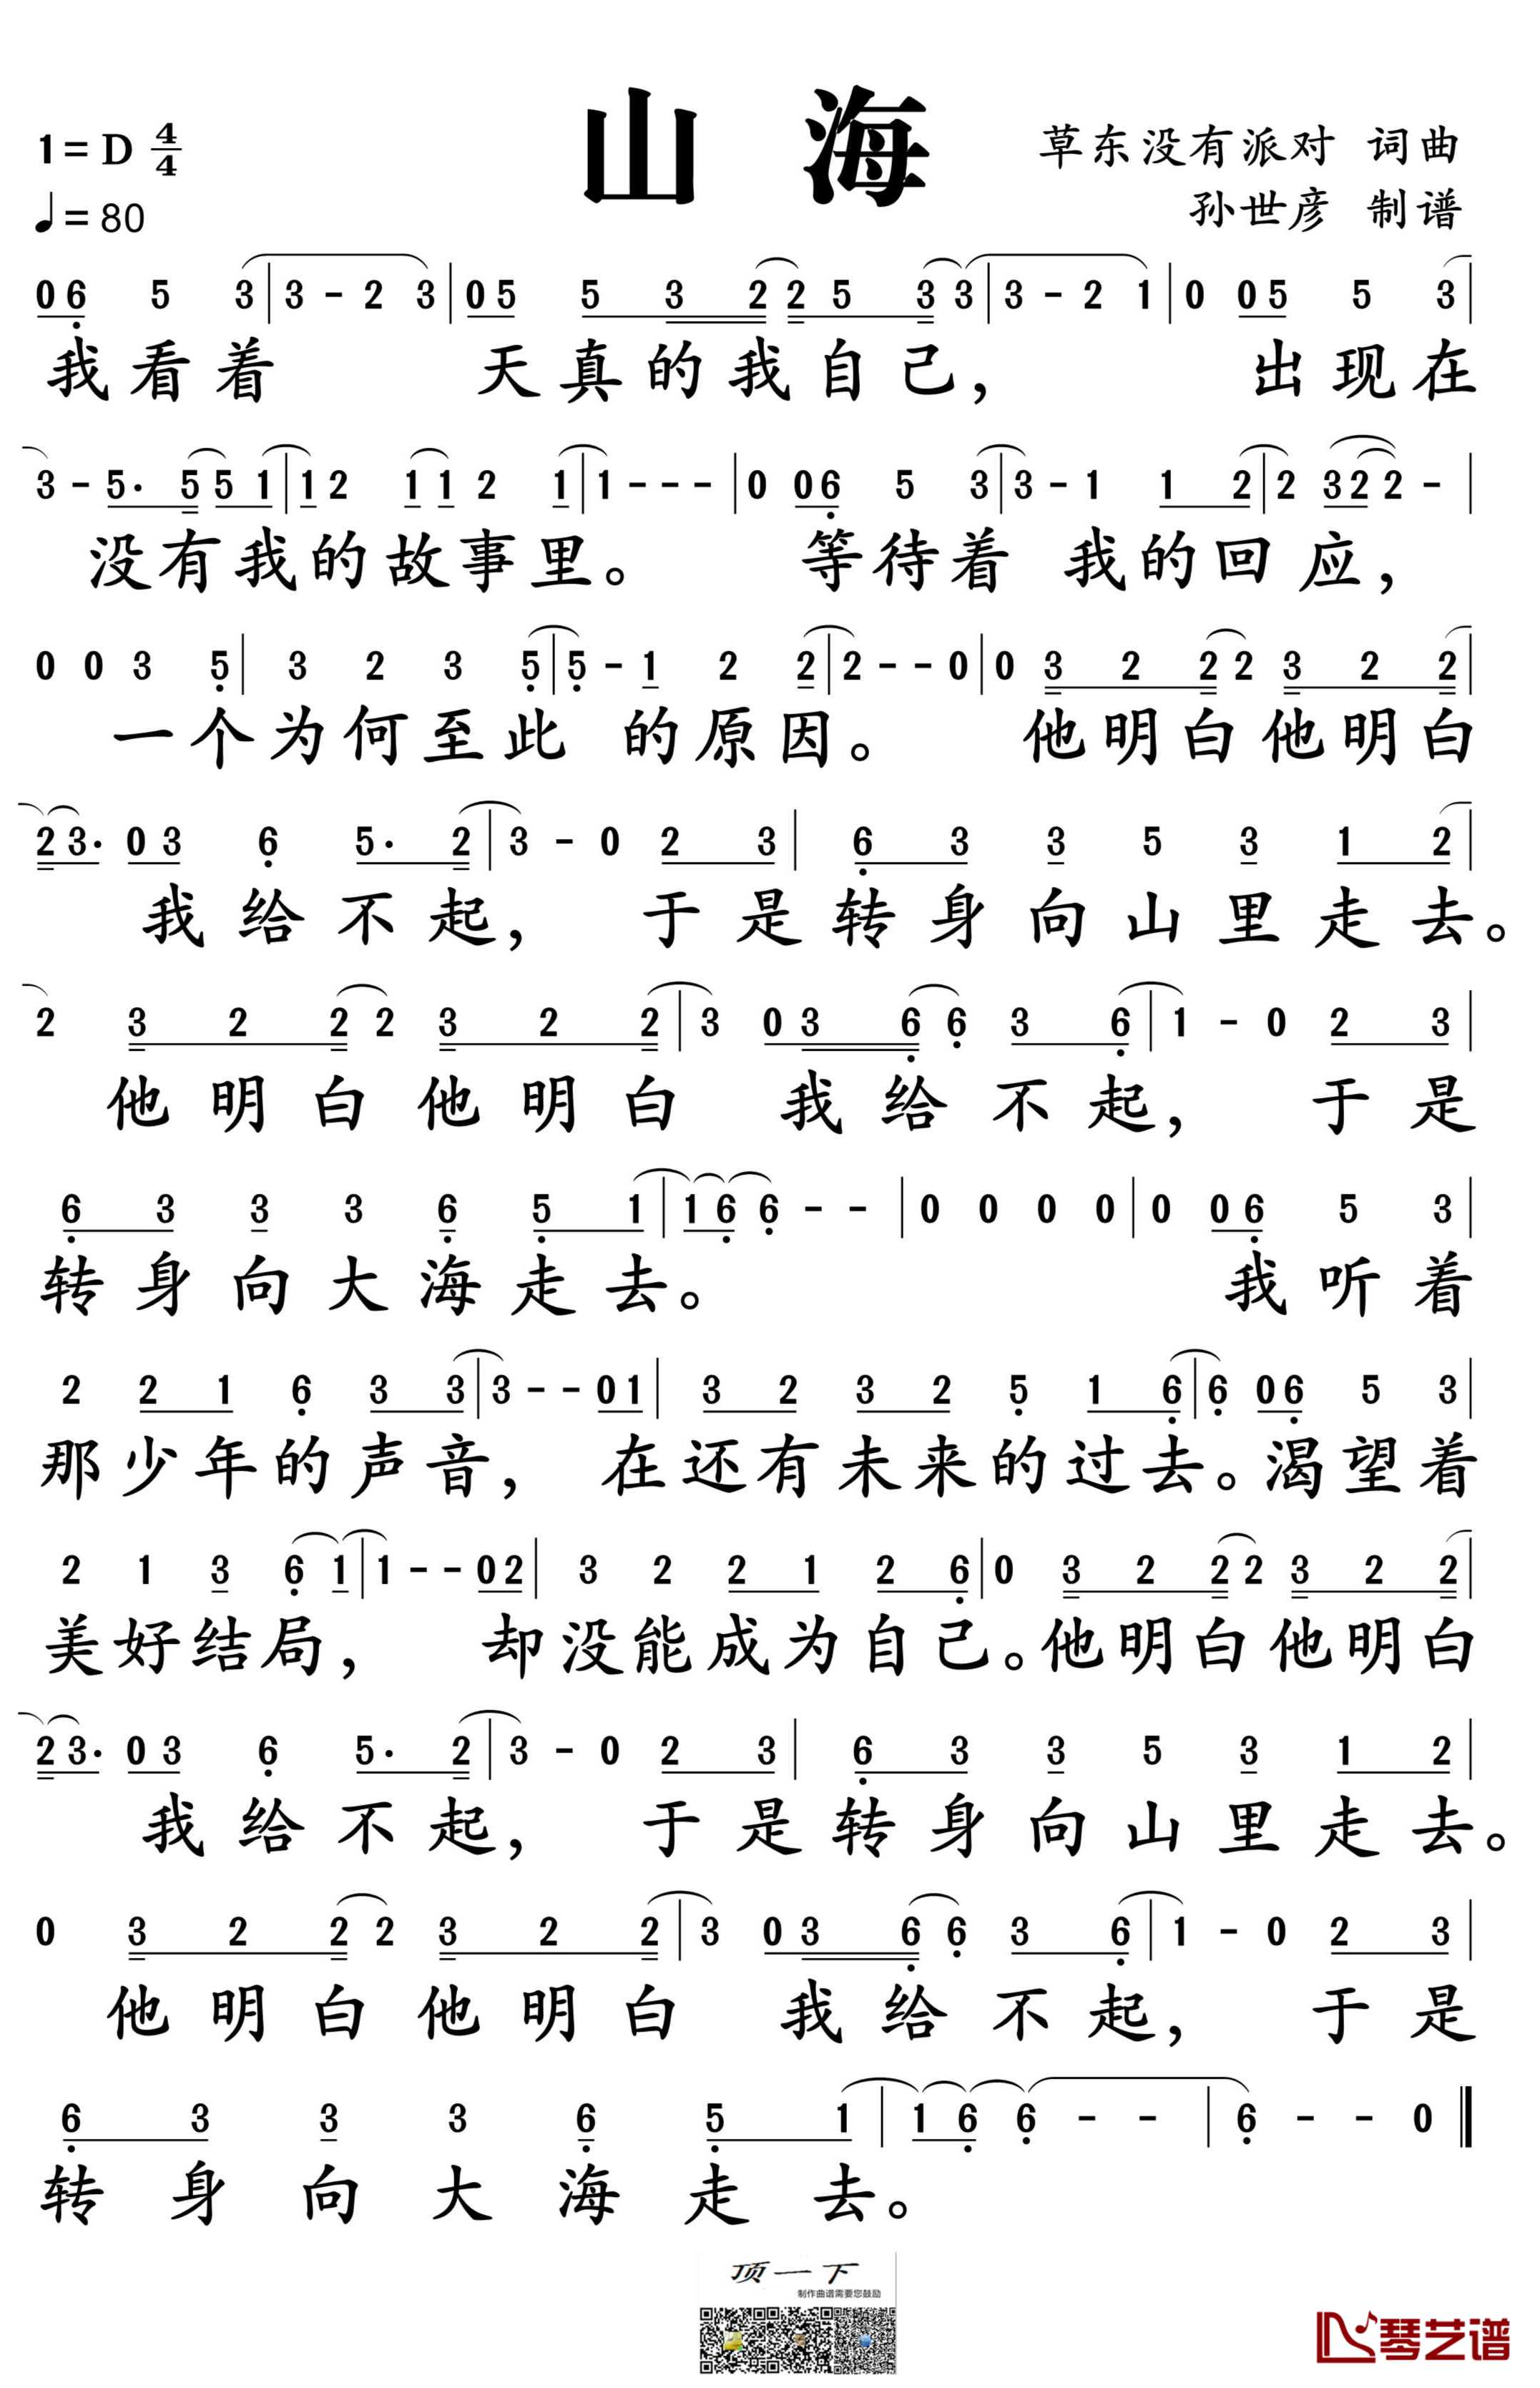 山 海
1= D 4/4
♩= 80
草东没有派对 词曲
孙世彦 制谱
0 6 5 3 | 3 - 2 3 | 0 5 5 3 2 2 5 3 3 | 3 - 2 1 | 0 0 5 5 3 |
我看着 天真的我自己, 出现在
3 - 5. 5 5 1 | 1 2 1 1 2 1 | 1 - - - | 0 0 6 5 3 | 3 - 1 1 2 | 2 3 2 2 - |
没有我的故事里。 等待着 我的回应,
0 0 3 5 | 3 2 3 5 | 5 - 1 2 2 | 2 - - 0 | 0 3 2 2 2 3 2 2 |
一个为何至此 的原因。 他明白他明白
2 3. 0 3 6 5. 2 | 3 - 0 2 3 | 6 3 3 5 3 1 2 |
我给不起, 于是转身向山里走去。
2 3 2 2 2 3 2 2 | 3 0 3 6 6 3 6 | 1 - 0 2 3 |
他明白他明白 我给不起, 于是
6 3 3 3 6 5 1 | 1 6 6 - - | 0 0 0 0 | 0 0 6 5 3 |
转身向大海走去。 我听着
2 2 1 6 3 3 | 3 - - 0 1 | 3 2 3 2 5 1 6 | 6 0 6 5 3 |
那少年的声音, 在还有未来的过去。渴望着
2 1 3 6 1 | 1 - - 0 2 | 3 2 2 1 2 6 | 0 3 2 2 2 3 2 2 |
美好结局, 却没能成为自己。他明白他明白
2 3. 0 3 6 5. 2 | 3 - 0 2 3 | 6 3 3 5 3 1 2 |
我给不起, 于是转身向山里走去。
0 3 2 2 2 3 2 2 | 3 0 3 6 6 3 6 | 1 - 0 2 3 |
他明白他明白 我给不起, 于是
6 3 3 3 6 5 1 | 1 6 6 - - | 6 - - 0 ‖
转身向大海走去。
顶一下
制作曲谱需要您鼓励
琴艺谱